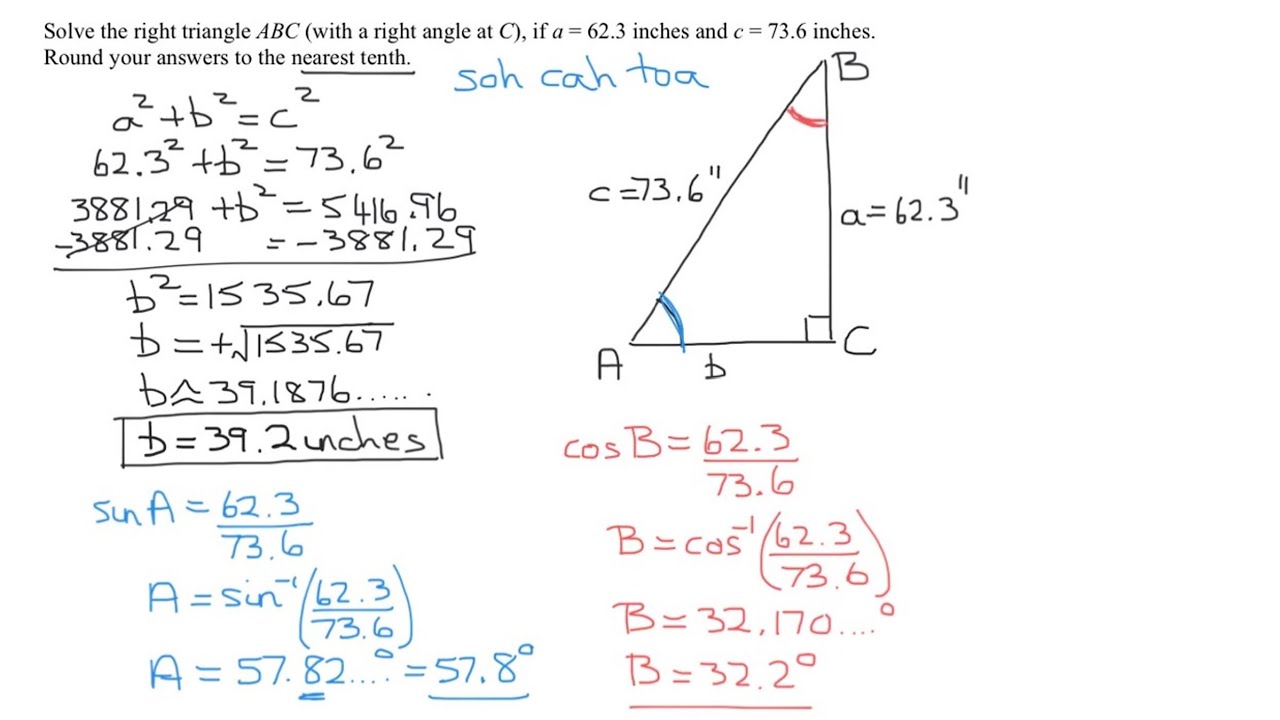 Solve the right triangle ABC (with a right angle at C), if a = 62.3 inches and c = 73.6 inches.
Round your answers to the nearest tenth.
soh cah toa
a² + b² = c²
62.3² + b² = 73.6²
3881.29 + b² = 5416.96
-3881.29 = -3881.29
b² = 1535.67
b = +√1535.67
b ≈ 39.1876......
b = 39.2 inches
B
c = 73.6"
a = 62.3"
A
b
C
sin A = 62.3
73.6
A = sin⁻¹(62.3
73.6)
A = 57.82...° = 57.8°
cos B = 62.3
73.6
B = cos⁻¹(62.3
73.6)
B = 32.170....°
B = 32.2°